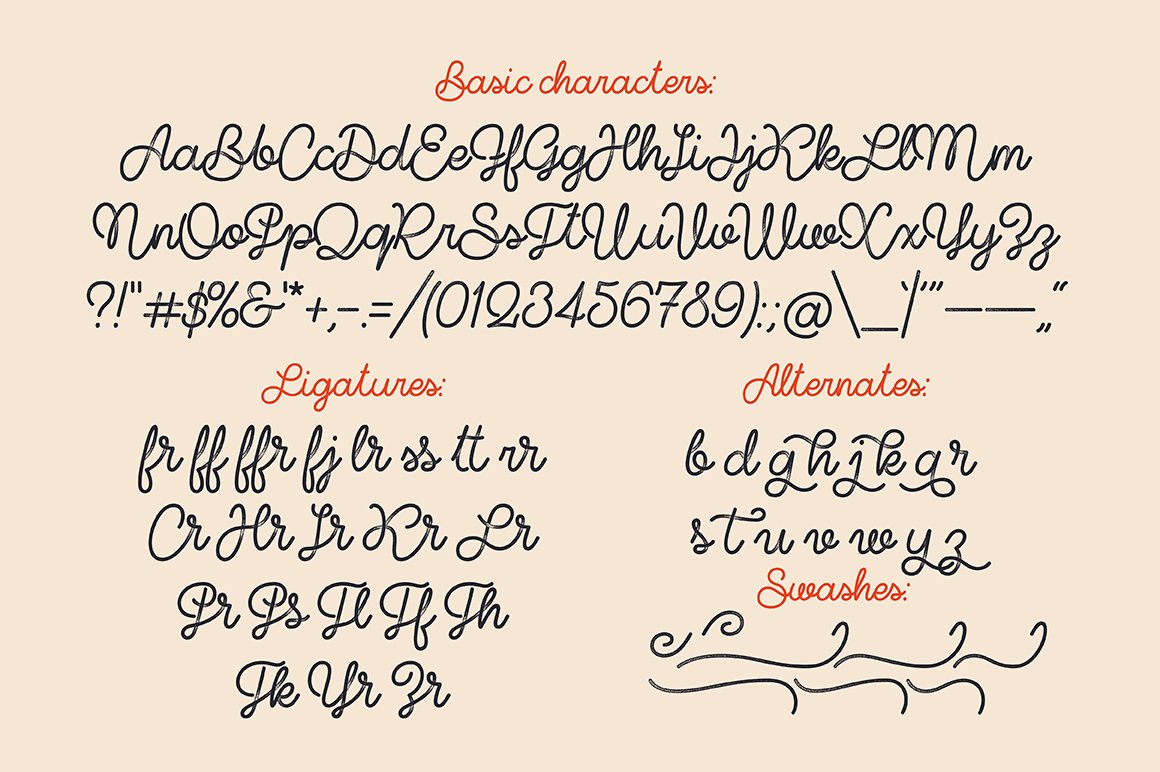 Basic characters:
AaBbCcDdEeFfGgHhIiJjKkLlMm
NnOoPpQqRrSsTtUuVvWwXxYyZz
?!"#$%&'*+,-.=/(0123456789):;@\_`|‘’”–—„“
Ligatures:
fr ff ffr fj lr ss tt rr
Cr Hr Ir Kr Lr
Pr Ps Tl Tf Th
Tk Yr Zr
Alternates:
b d g h j k q r
s t u v w y z
Swashes: